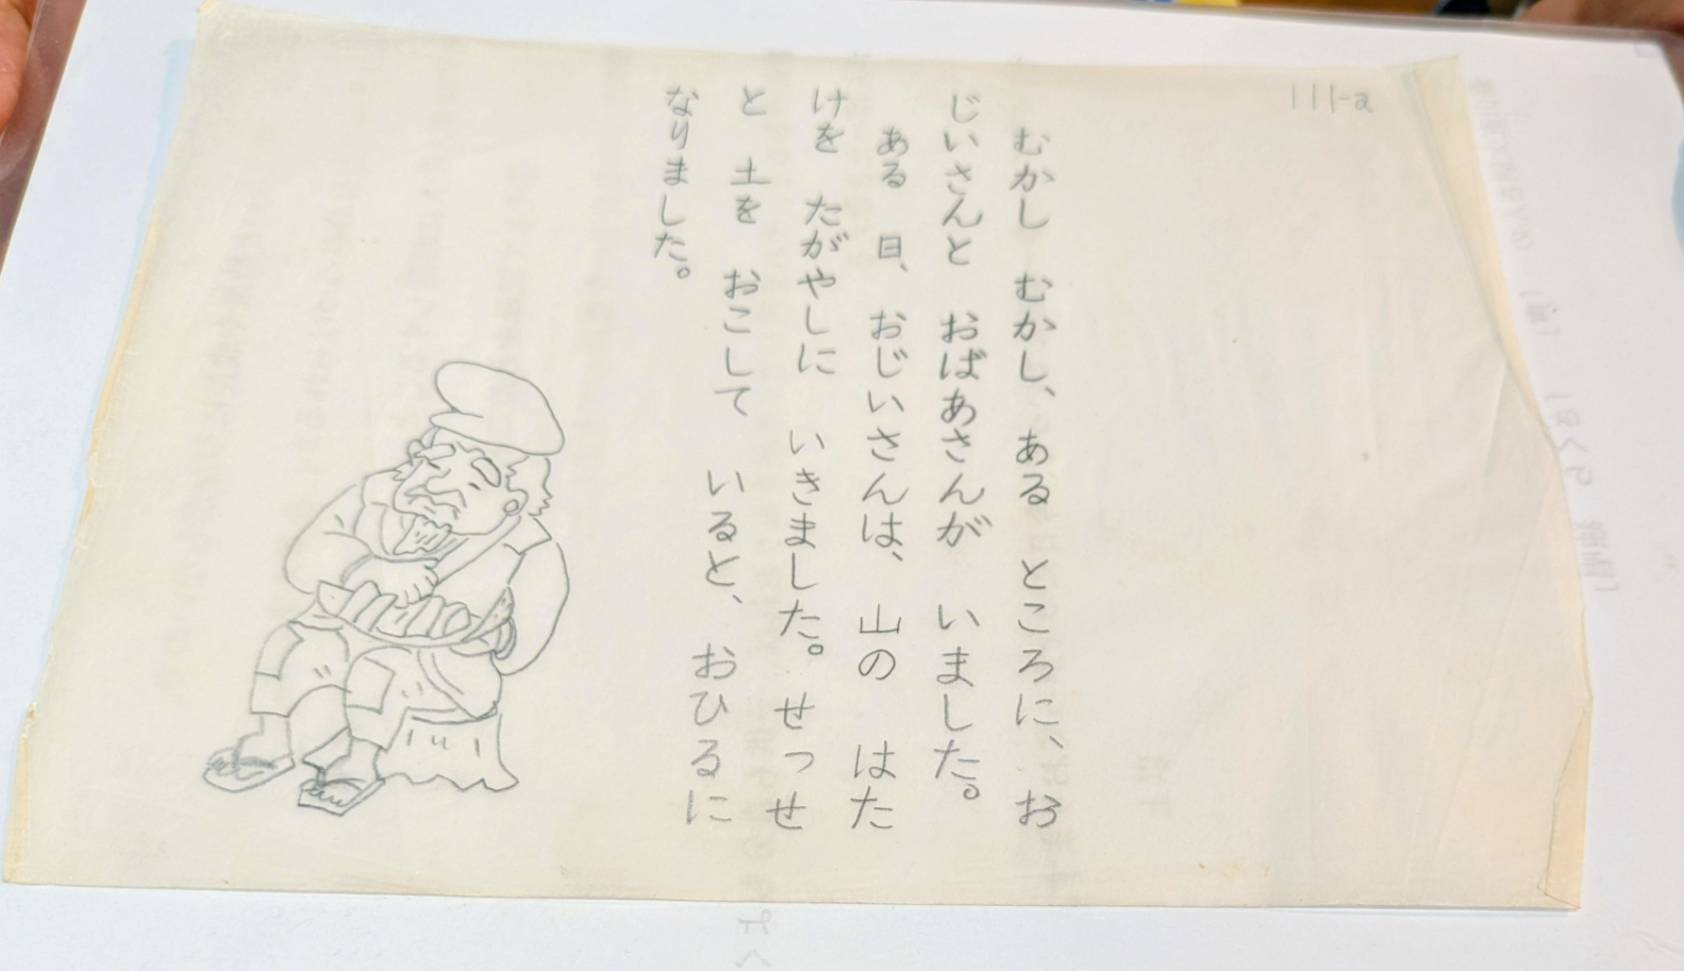 111-a
むかし　むかし、ある　ところに、お
じいさんと　おばあさんが　いました。
ある　日、おじいさんは、山の　はた
けを　たがやしに　いきました。せっせ
と　土を　おこして　いると、おひるに
なりました。